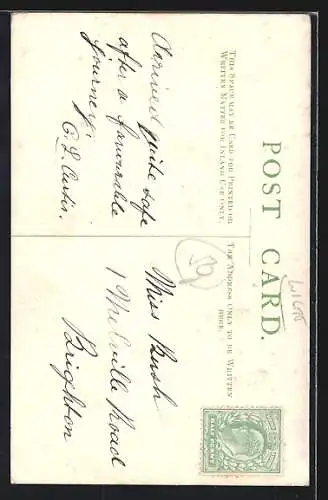 POST CARD.
THIS SPACE MAY BE USED FOR PRINTED OR
WRITTEN MATTER FOR INLAND USE ONLY.
THE ADDRESS ONLY TO BE WRITTEN
HERE.
Arrived quite safe
after a favourable
journey.
C. L. Curtis.
Miss Rush
1 Melville Road
Brighton
59
HALF PENNY